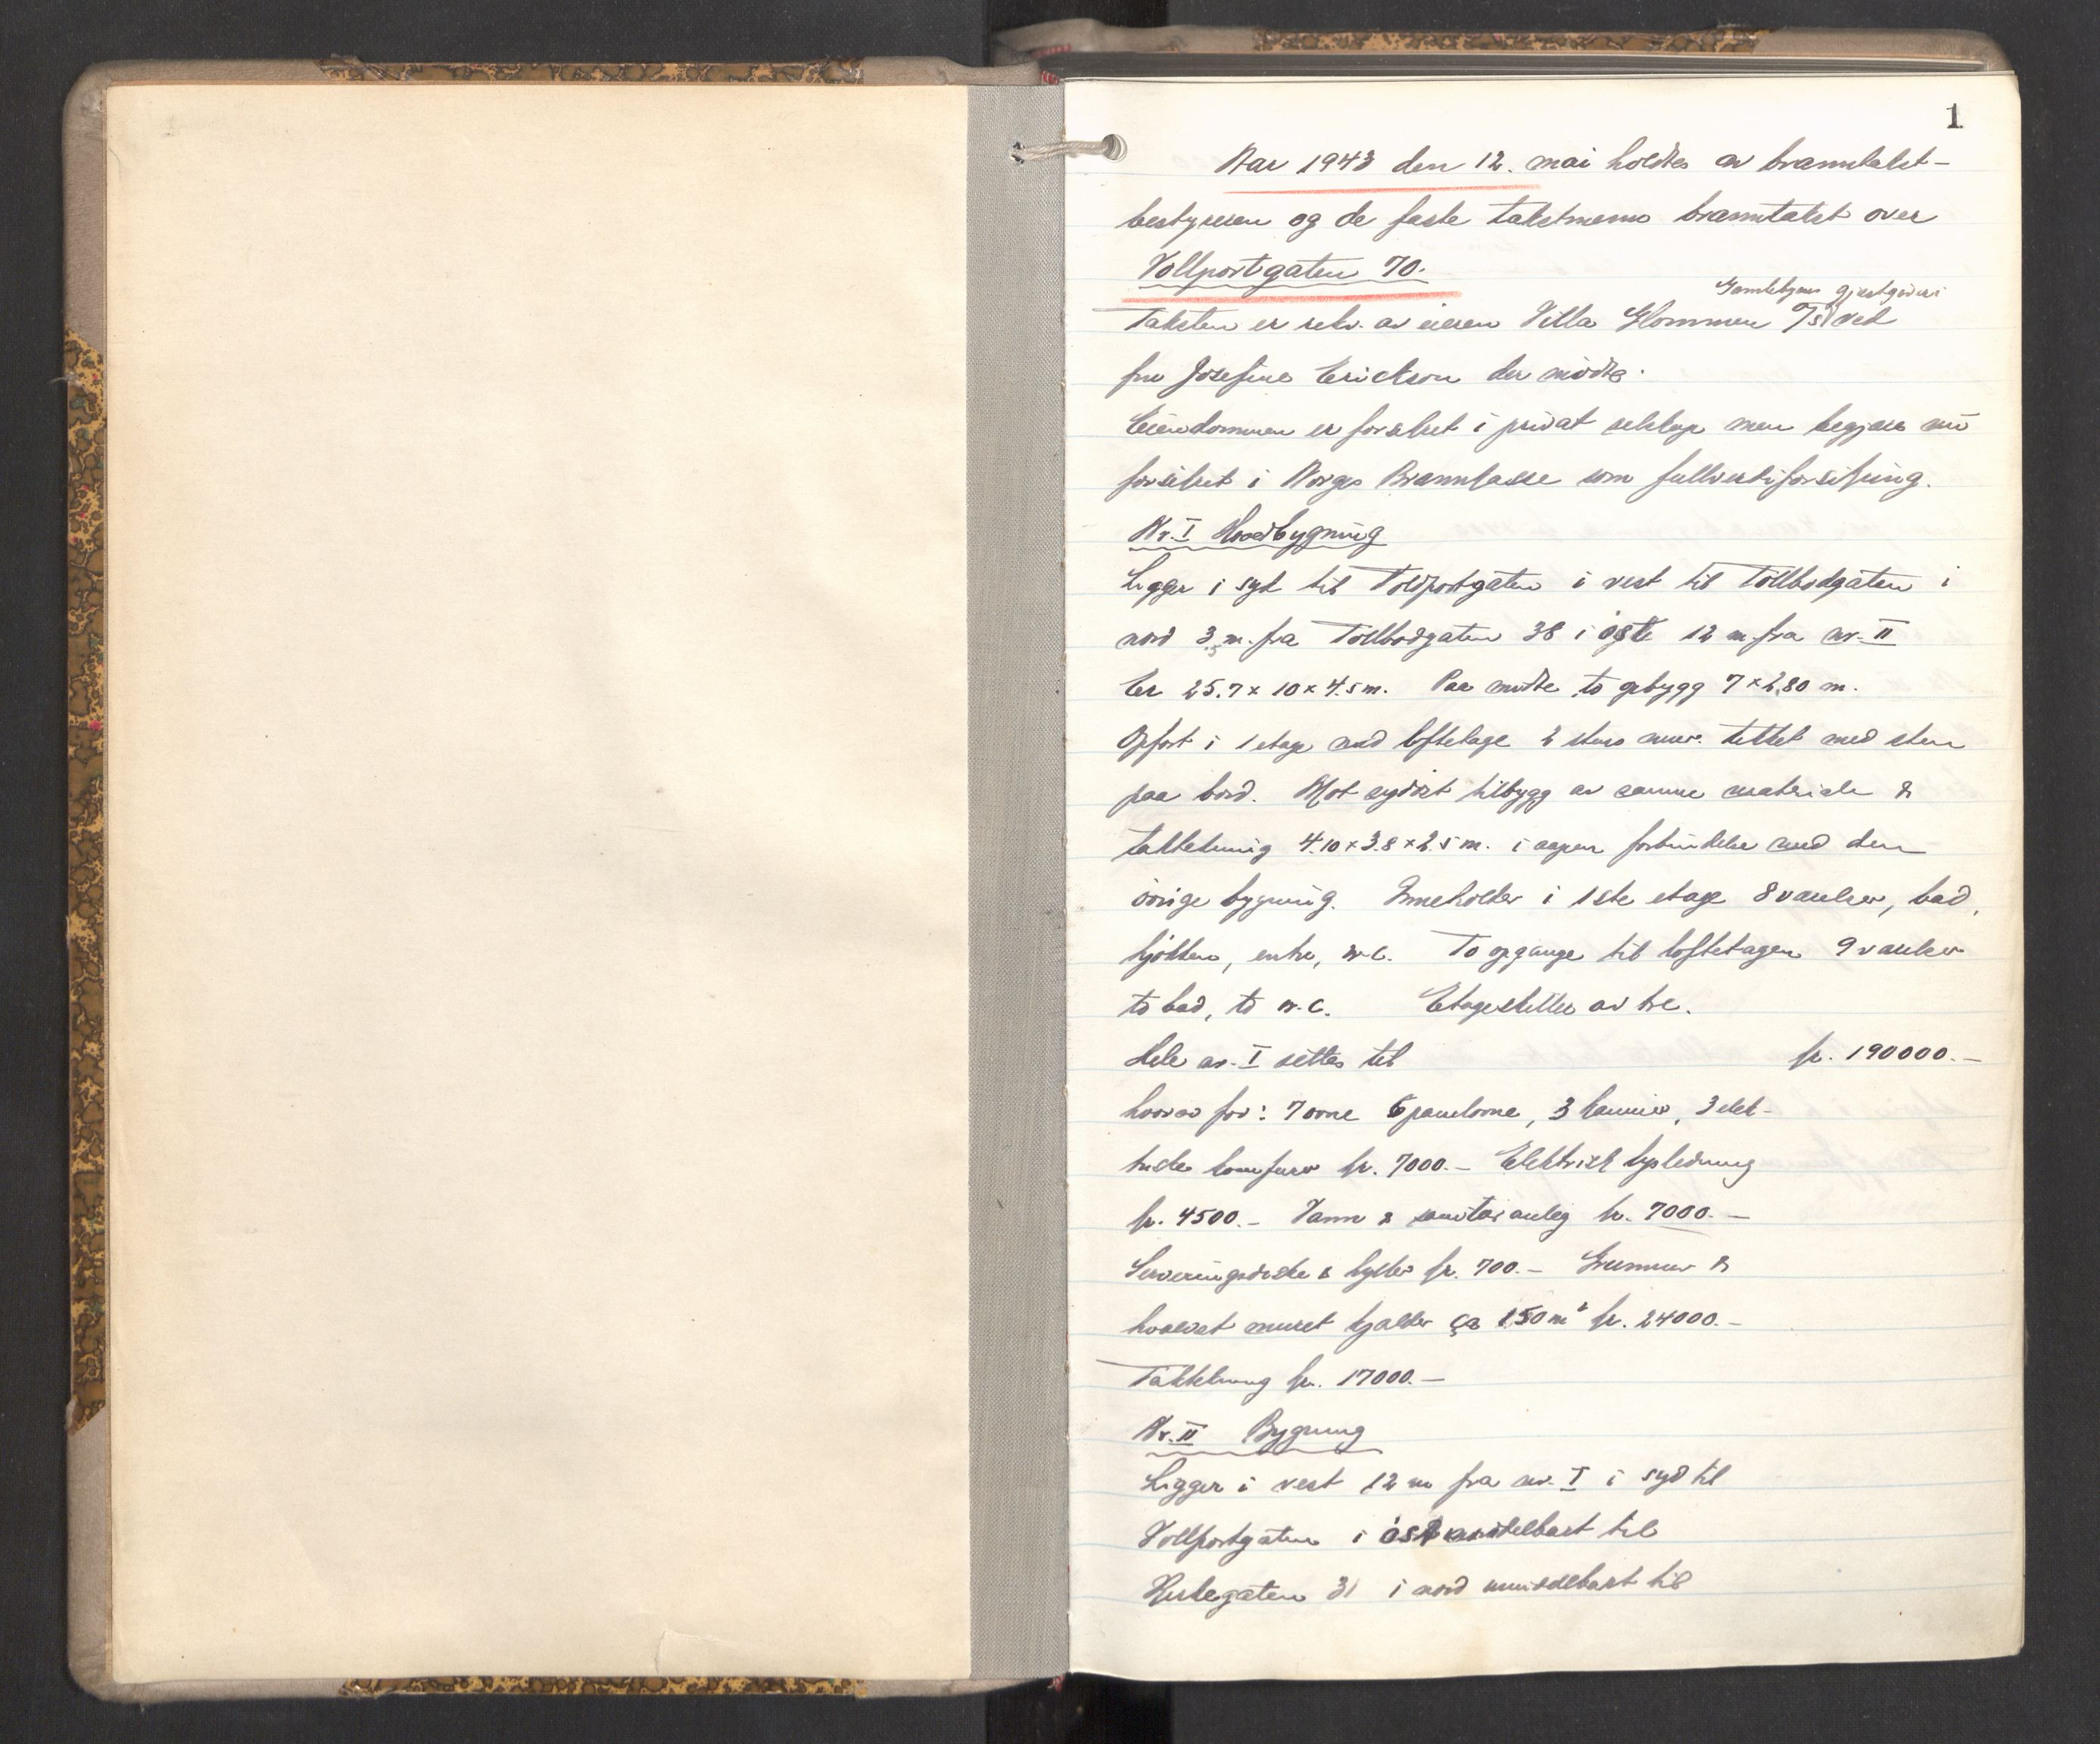 1
Aar 1943 den 12. mai holdtes av branntakst-
bestyreren og de faste takstmenn branntakst over
Vollportgaten 70.
Gamlebyens gjestgiveri
Taksten er rekv. av eieren Villa Glommen A/S ved
fru Josefine Erickson der mødte.
Eiendommen er forsikret i privat selskap men begjæres nu
forsikret i Norges Brannkasse som fullverdiforsikring.
Nr. I Hovedbygning
Ligger i syd til Voldportgaten i vest til Tollbodgaten i
nord 3,5 m. fra Tollbodgaten 38 i øste 12 m. fra nr. II
Er 25.7 x 10 x 4.5 m. Paa midte to opbygg 7 x 2,80 m.
Opført i 1 etage med loftetage 2 stens mur. tekket med sten
paa bord. Mot sydvest tilbygg av samme materiale &
taktekning 4.10 x 3.8 x 2.5 m. i aapen forbindelse med den
øvrige bygning. Inneholder i 1ste etage 8 værelser, bad,
kjøkken, entre, w.c. To opgange til loftetagen 9 værelser
to bad, to w.c. Etageskiller av tre.
Hele nr. I settes til kr. 190000.-
hvorav for: 7 ovne 6 panelovne, 3 kaminer, 3 elek-
triske komfurer kr. 7000.- Elektrisk lysledning
kr. 4500.- Vann & sanitæranleg kr. 7000.-
Serveringsdiske & hyller kr. 700.- Grunnmur &
hvelvet muret kjelder ca 150 m² kr. 24000.-
Taktekning kr. 17000.-
Nr. II Bygning
Ligger i vest 12 m fra nr. I i syd til
Vollportgaten i øst umiddelbart til
gaten 31 i nord umiddelbart til